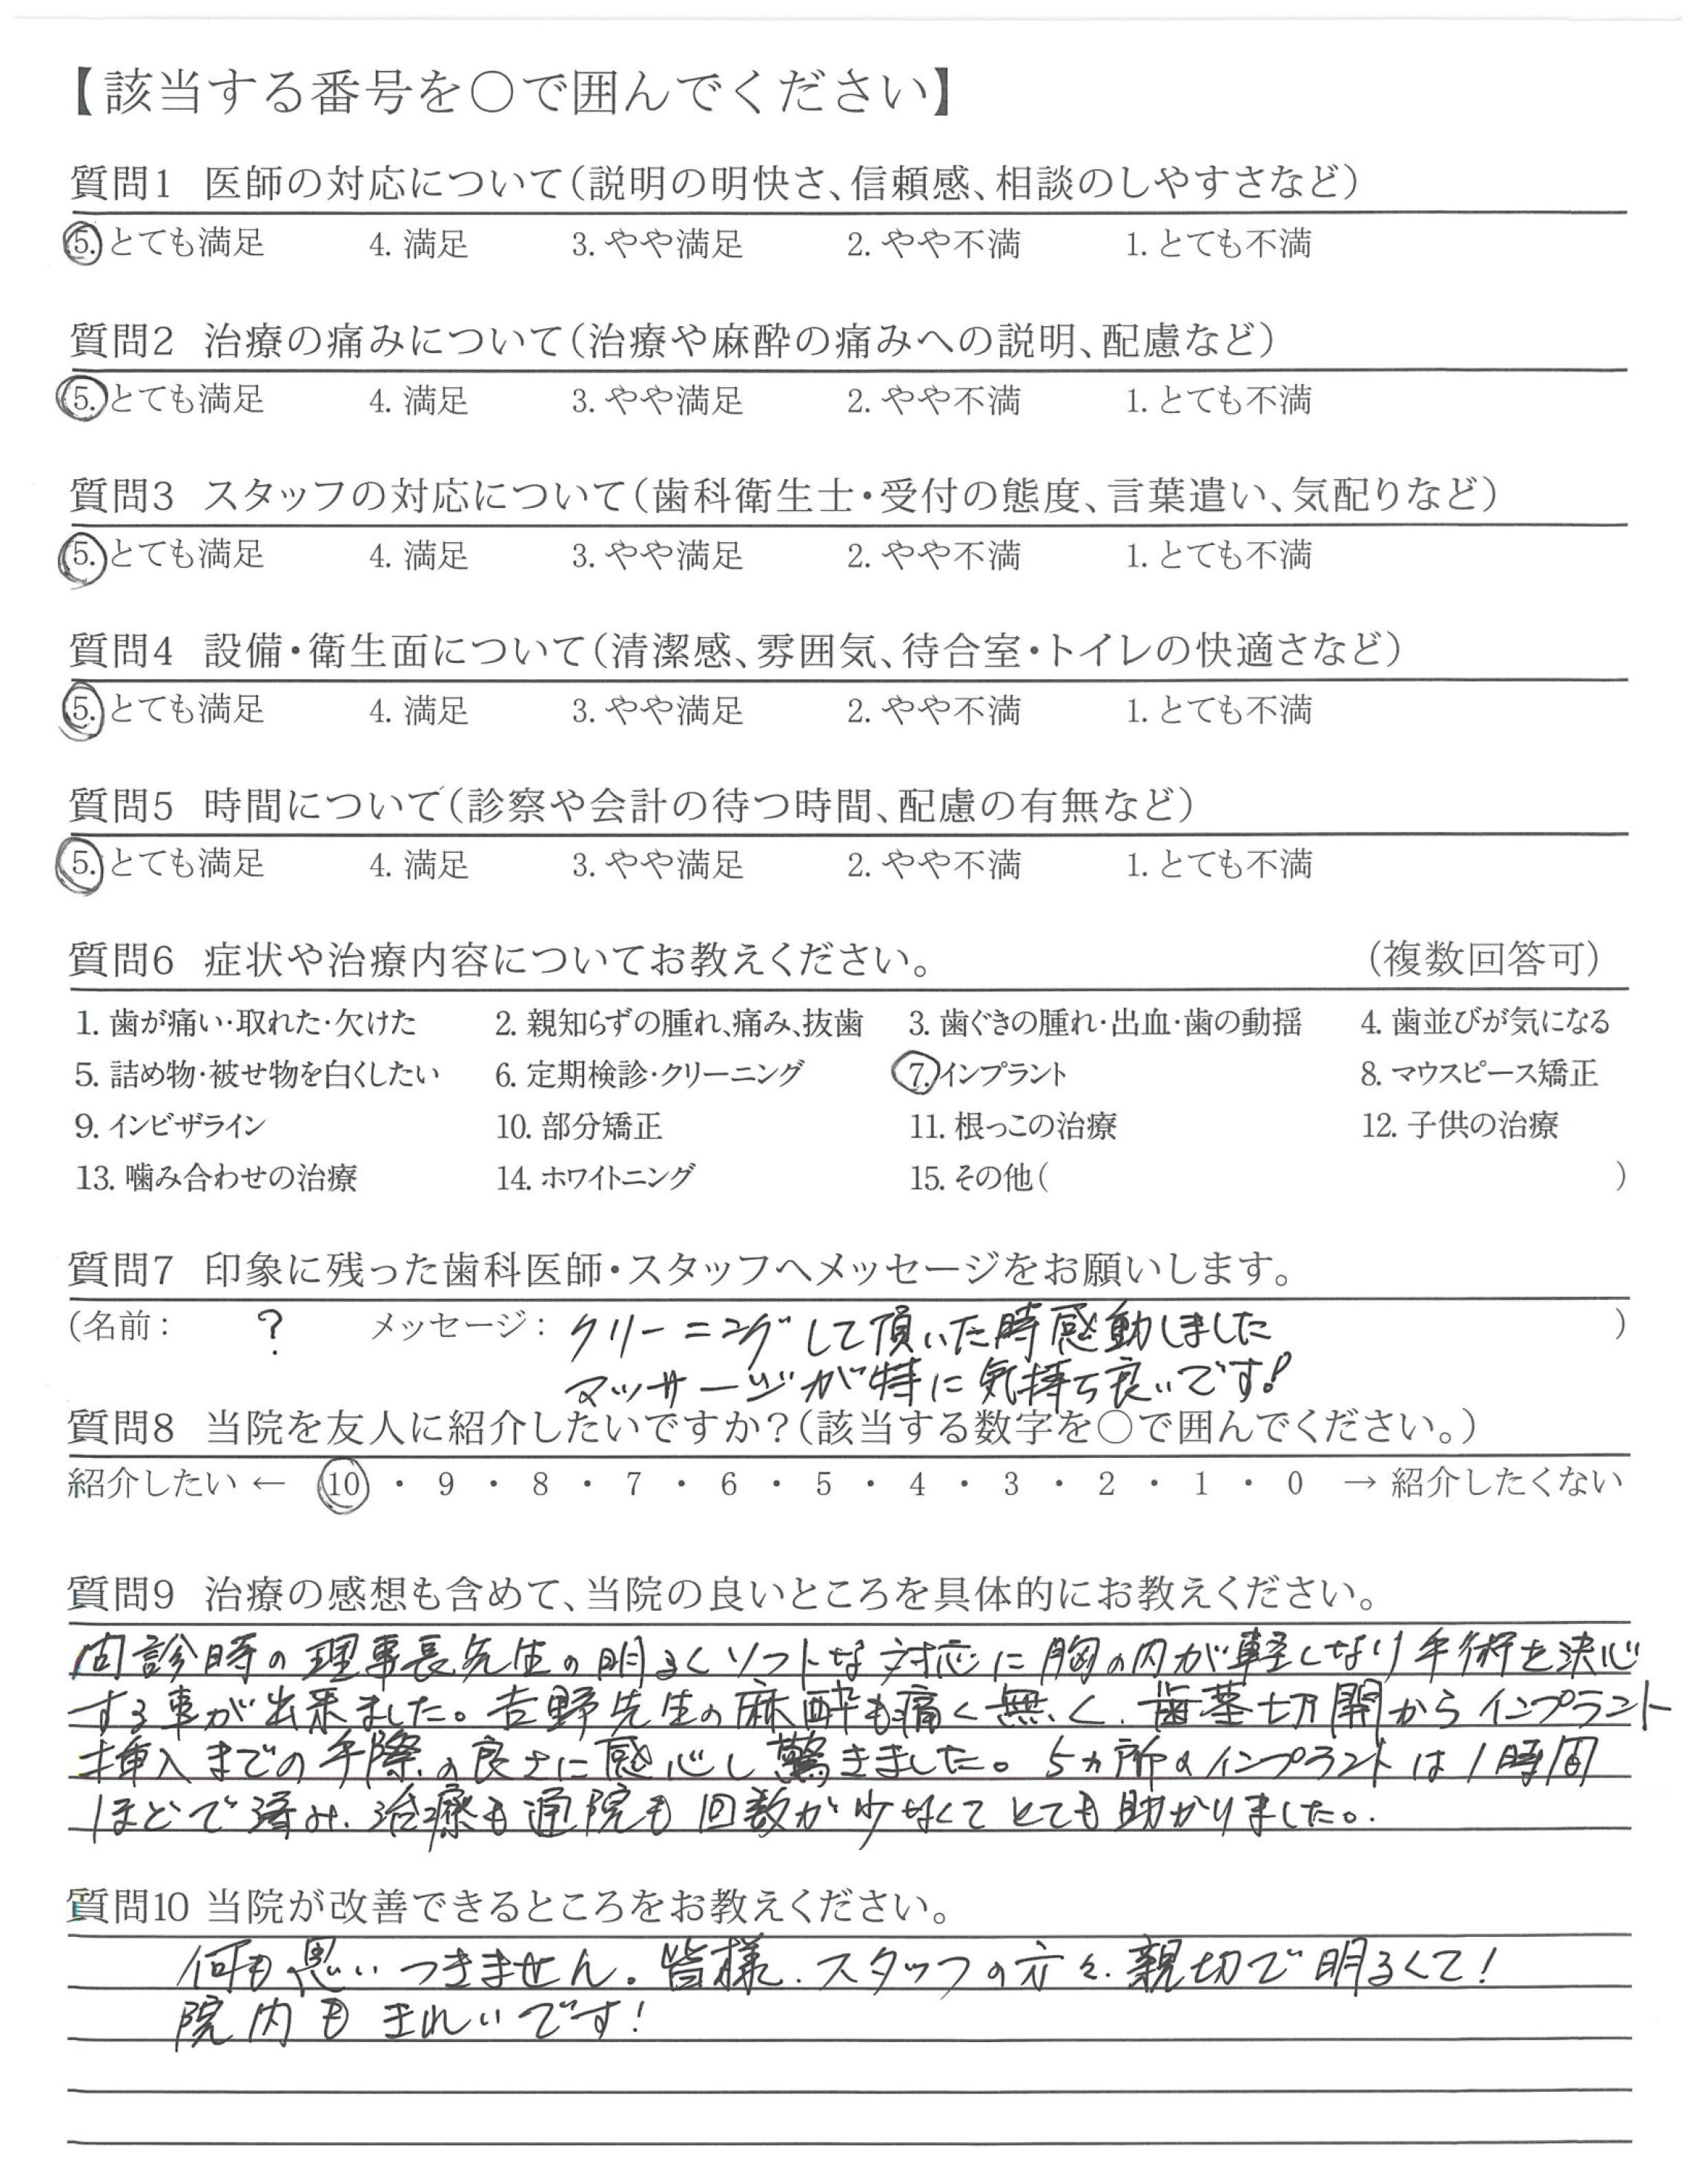 【該当する番号を○で囲んでください】
質問1 医師の対応について(説明の明快さ、信頼感、相談のしやすさなど)
5. とても満足 4. 満足 3. やや満足 2. やや不満 1. とても不満
質問2 治療の痛みについて(治療や麻酔の痛みへの説明、配慮など)
5. とても満足 4. 満足 3. やや満足 2. やや不満 1. とても不満
質問3 スタッフの対応について(歯科衛生士・受付の態度、言葉遣い、気配りなど)
5. とても満足 4. 満足 3. やや満足 2. やや不満 1. とても不満
質問4 設備・衛生面について(清潔感、雰囲気、待合室・トイレの快適さなど)
5. とても満足 4. 満足 3. やや満足 2. やや不満 1. とても不満
質問5 時間について(診察や会計の待つ時間、配慮の有無など)
5. とても満足 4. 満足 3. やや満足 2. やや不満 1. とても不満
質問6 症状や治療内容についてお教えください。 (複数回答可)
1. 歯が痛い・取れた・欠けた 2. 親知らずの腫れ、痛み、抜歯 3. 歯ぐきの腫れ・出血・歯の動揺 4. 歯並びが気になる
5. 詰め物・被せ物を白くしたい 6. 定期検診・クリーニング 7. インプラント 8. マウスピース矯正
9. インビザライン 10. 部分矯正 11. 根っこの治療 12. 子供の治療
13. 噛み合わせの治療 14. ホワイトニング 15. その他( )
質問7 印象に残った歯科医師・スタッフへメッセージをお願いします。
(名前: ? メッセージ: クリーニングして頂いた時感動しました )
マッサージが特に気持ち良いです!
質問8 当院を友人に紹介したいですか?(該当する数字を○で囲んでください。)
紹介したい ← 10 ・ 9 ・ 8 ・ 7 ・ 6 ・ 5 ・ 4 ・ 3 ・ 2 ・ 1 ・ 0 → 紹介したくない
質問9 治療の感想も含めて、当院の良いところを具体的にお教えください。
問診時の理事長先生の明るくソフトな対応に胸の内が軽くなり手術を決心
する事が出来ました。吉野先生の麻酔も痛く無く、歯茎切開からインプラント
挿入までの手際の良さに感心し驚きました。5ヵ所のインプラントは1時間
ほどで済み、治療も通院も回数が少なくてとても助かりました。
質問10 当院が改善できるところをお教えください。
何も思いつきません。皆様、スタッフの方々、親切で明るくて!
院内もきれいです!